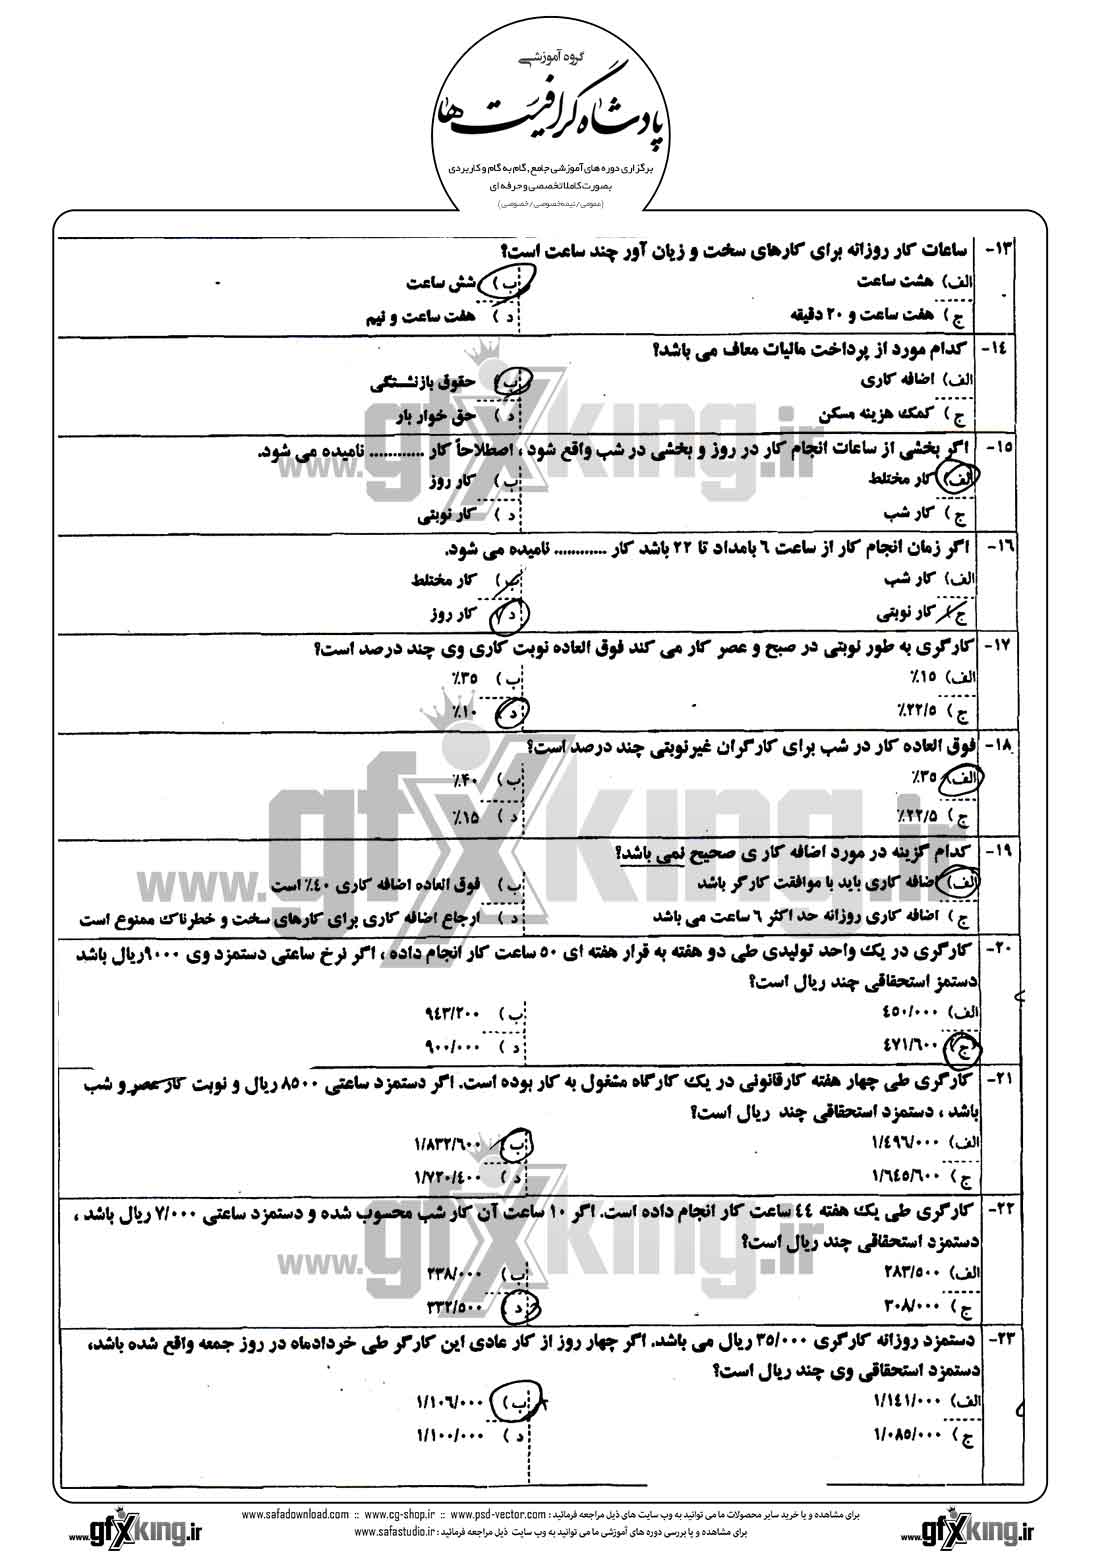 گروه آموزشی
پادشاه گرافیست ها
برگزاری دوره های آموزشی جامع, گام به گام و کاربردی
بصورت کاملا تخصصی و حرفه ای
(عمومی/نیمه‌خصوصی/خصوصی)
۱۳- ساعات کار روزانه برای کارهای سخت و زیان آور چند ساعت است؟
الف) هشت ساعت ب) شش ساعت
ج) هفت ساعت و ۲۰ دقیقه د) هفت ساعت و نیم
۱۴- کدام مورد از پرداخت مالیات معاف می باشد؟
الف) اضافه کاری ب) حقوق بازنشستگی
ج) کمک هزینه مسکن د) حق خوار بار
۱۵- اگر بخشی از ساعات انجام کار در روز و بخشی در شب واقع شود ، اصطلاحاً کار ............ نامیده می شود.
الف) کار مختلط ب) کار روز
ج) کار شب د) کار نوبتی
۱۶- اگر زمان انجام کار از ساعت ۶ بامداد تا ۲۲ باشد کار ............ نامیده می شود.
الف) کار شب ب) کار مختلط
ج) کار نوبتی د) کار روز
۱۷- کارگری به طور نوبتی در صبح و عصر کار می کند فوق العاده نوبت کاری وی چند درصد است؟
الف) ۱۵٪ ب) ۳۵٪
ج) ۲۲/۵٪ د) ۱۰٪
۱۸- فوق العاده کار در شب برای کارگران غیرنوبتی چند درصد است؟
الف) ۳۵٪ ب) ۴۰٪
ج) ۲۲/۵٪ د) ۱۵٪
۱۹- کدام گزینه در مورد اضافه کار ی صحیح نمی باشد؟
الف) اضافه کاری باید با موافقت کارگر باشد ب) فوق العاده اضافه کاری ۴۰٪ است
ج) اضافه کاری روزانه حد اکثر ۶ ساعت می باشد د) ارجاع اضافه کاری برای کارهای سخت و خطرناک ممنوع است
۲۰- کارگری در یک واحد تولیدی طی دو هفته به قرار هفته ای ۵۰ ساعت کار انجام داده ، اگر نرخ ساعتی دستمزد وی ۹۰۰۰ریال باشد
دستمز استحقاقی چند ریال است؟
الف) ۴۵۰/۰۰۰ ب) ۹۴۳/۲۰۰
ج) ۴۷۱/۶۰۰ د) ۹۰۰/۰۰۰
۲۱- کارگری طی چهار هفته کارقانونی در یک کارگاه مشغول به کار بوده است. اگر دستمزد ساعتی ۸۵۰۰ ریال و نوبت کار عصر و شب
باشد ، دستمزد استحقاقی چند ریال است؟
الف) ۱/۴۹۶/۰۰۰ ب) ۱/۸۳۲/۶۰۰
ج) ۱/۶۴۵/۶۰۰ د) ۱/۷۲۰/۴۰۰
۲۲- کارگری طی یک هفته ۴۴ ساعت کار انجام داده است. اگر ۱۰ ساعت آن کار شب محسوب شده و دستمزد ساعتی ۷/۰۰۰ ریال باشد ،
دستمزد استحقاقی چند ریال است؟
الف) ۲۸۳/۵۰۰ ب) ۲۳۸/۰۰۰
ج) ۳۰۸/۰۰۰ د) ۳۳۲/۵۰۰
۲۳- دستمزد روزانه کارگری ۳۵/۰۰۰ ریال می باشد. اگر چهار روز از کار عادی این کارگر طی خردادماه در روز جمعه واقع شده باشد،
دستمزد استحقاقی وی چند ریال است؟
الف) ۱/۱۴۱/۰۰۰ ب) ۱/۱۰۶/۰۰۰
ج) ۱/۰۸۵/۰۰۰ د) ۱/۱۰۰/۰۰۰
www.gfxking.ir
www.gfxking.ir
www.gfxking.ir
برای مشاهده و یا خرید سایر محصولات ما می توانید به وب سایت های ذیل مراجعه فرمائید : www.safadownload.com :: www.cg-shop.ir :: www.psd-vector.com
برای مشاهده و یا بررسی دوره های آموزشی ما می توانید به وب سایت ذیل مراجعه فرمائید : www.safastudio.ir
www.gfxking.ir
www.gfxking.ir